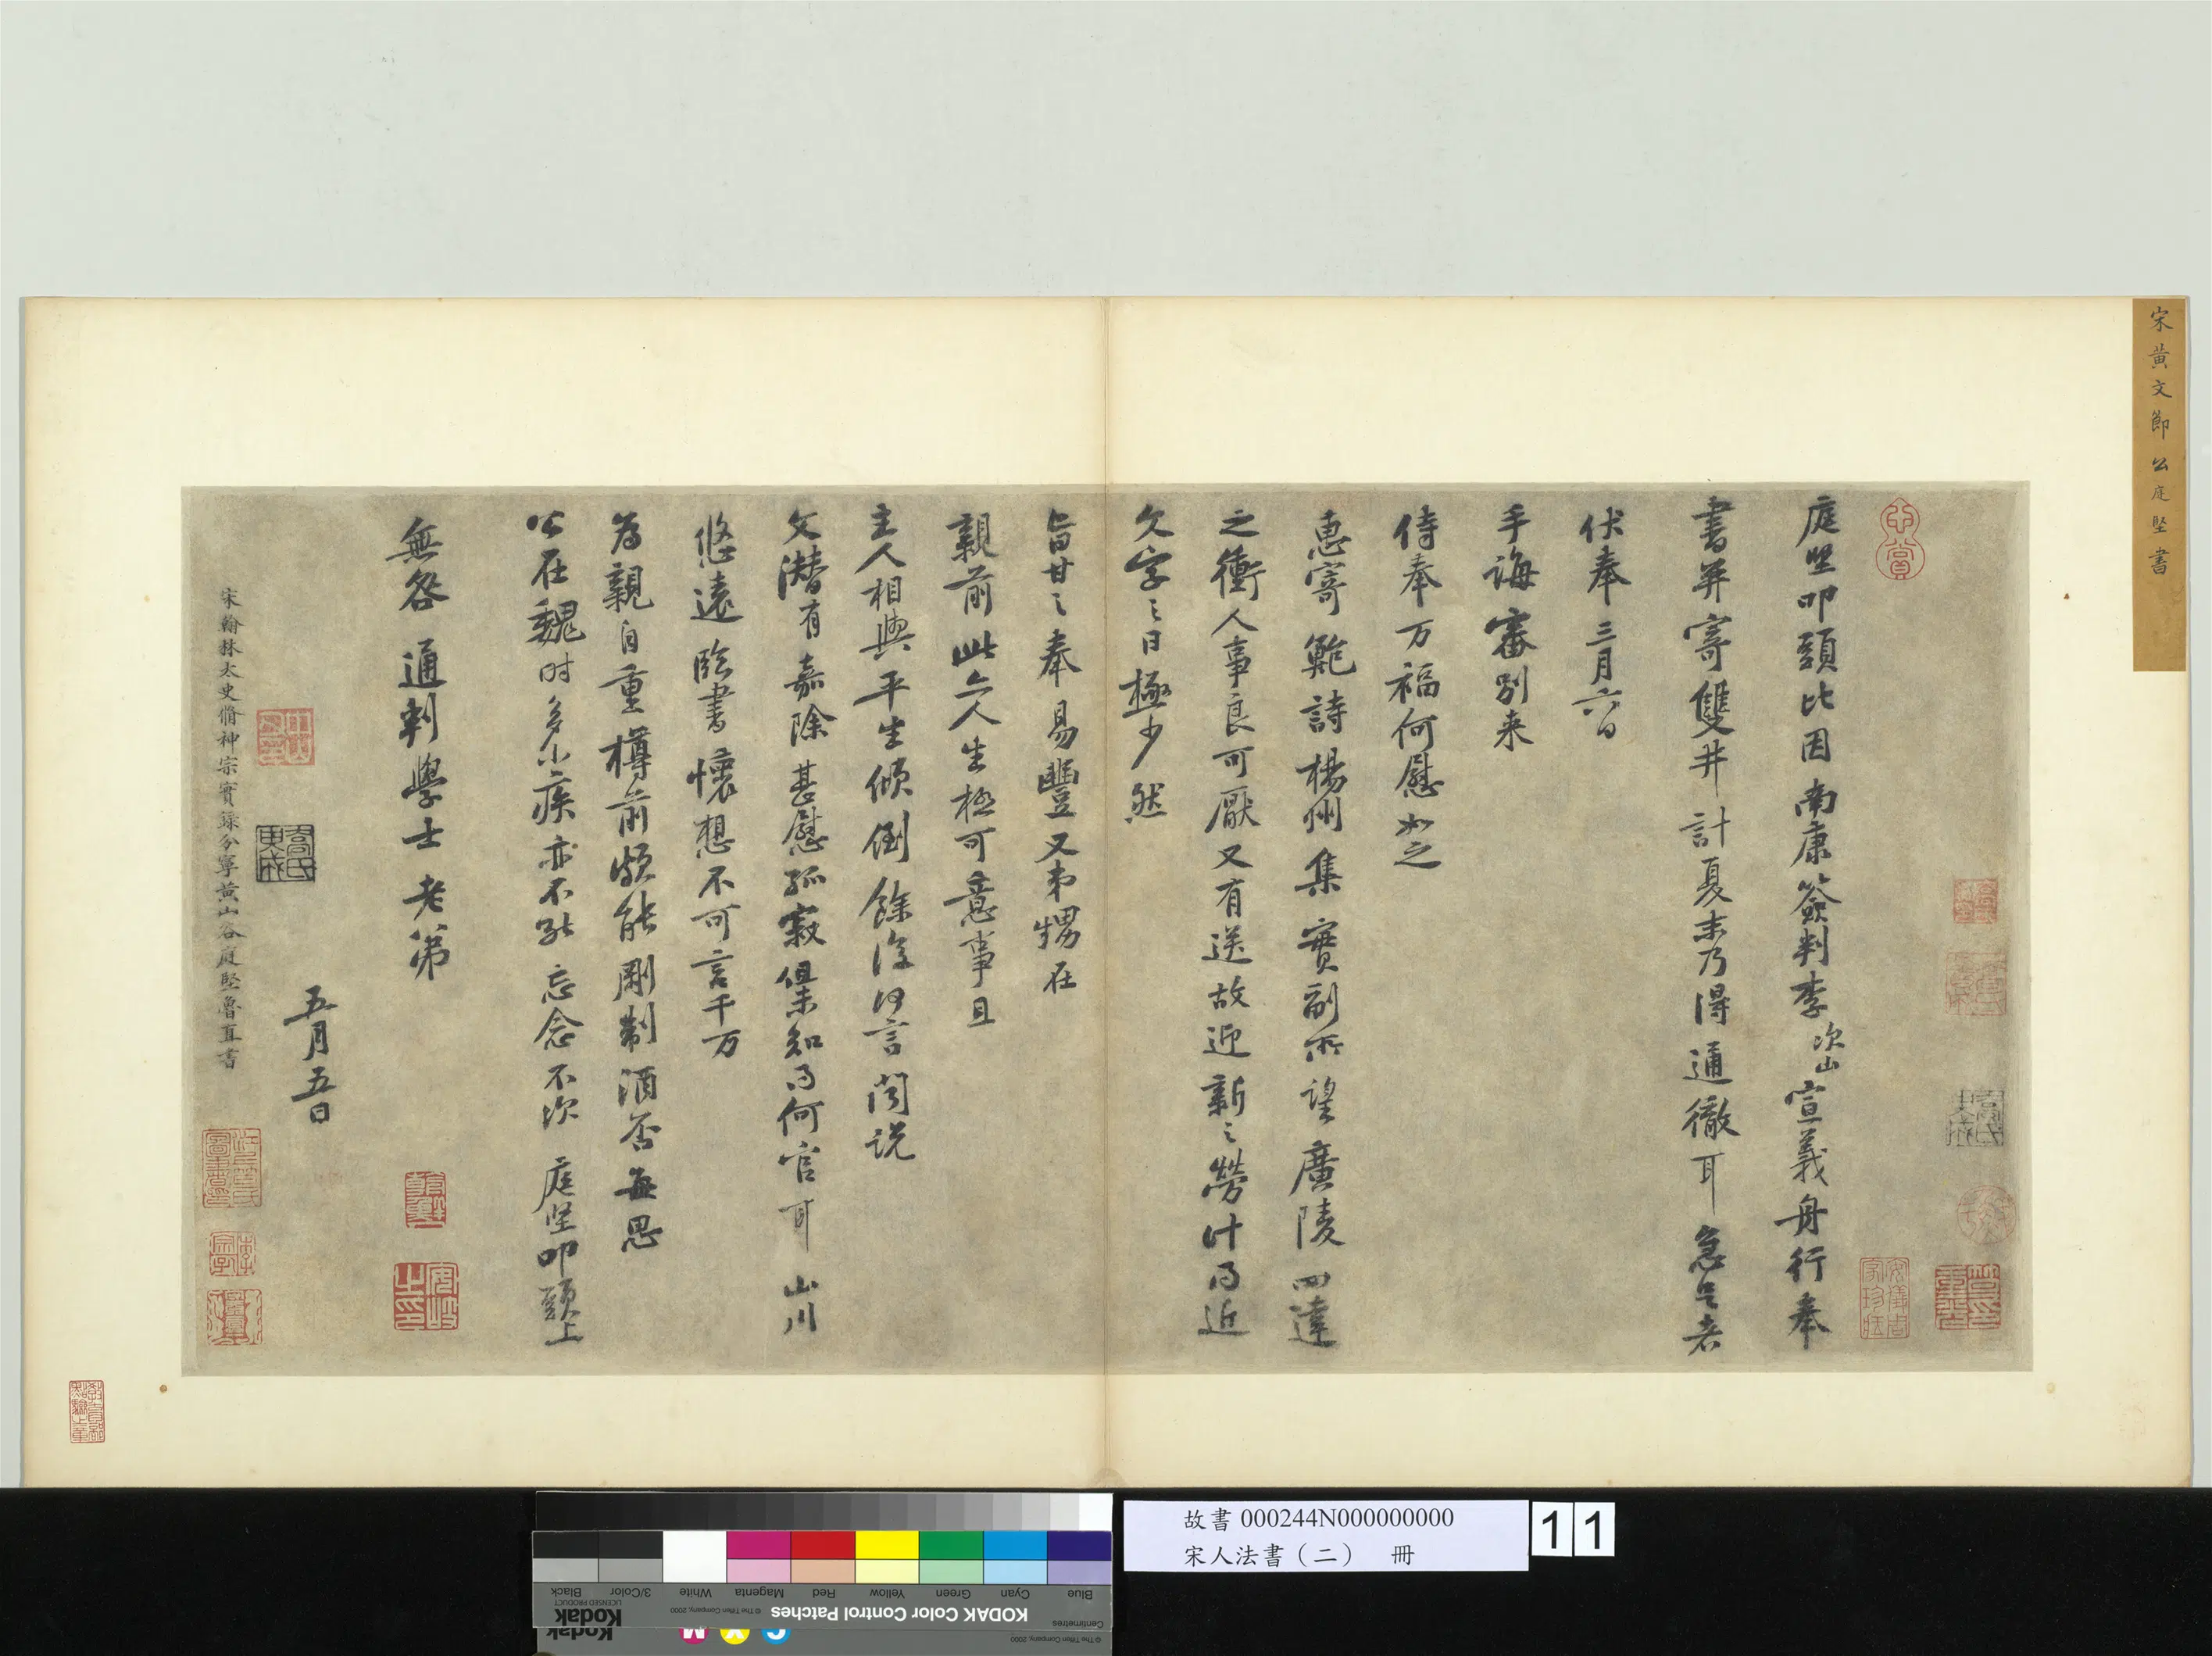 宋黃文節公庭堅書
庭堅叩頭比因南康簽判李次山宣義舟行奉
書并寄雙井計夏末乃得通徹耳急足者
伏奉三月六日
手誨審別来
侍奉万福何慰如之
惠寄鮑詩楊州集實副所望廣陵四達
之衝人事良可厭又有送故迎新之勞計得近
文字之日極少然
旨甘之奉易豐又弟甥在
親前此亦人生極可意事且
主人相與平生傾倒餘復何言聞說
文潛有嘉除甚慰孤寂但未知得何官耳山川
悠遠臨書懷想不可言千万
為親自重樽前頗能剛制酒否每思
公在魏時多小疾亦不能忘念不次庭堅叩頭上
無咎通判學士老弟
五月五日
宋翰林太史脩神宗實錄分寧黃山谷庭堅魯直書
故書 000244N000000000
宋人法書（二） 冊
11
Blue Cyan Green Yellow Red Magenta White 3/Color Black
Centimetres
KODAK Color Control Patches
© The Tiffen Company, 2000
Kodak
LICENSED PRODUCT
© The Tiffen Company, 2000
Kodak
C Y M